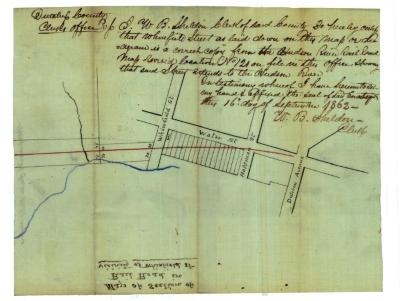 Dutchess County
Clerks Office
I. W. B. Sheldon Clerk of said County Do hereby certify
that Winfield Street as laid down on this Map or
is a correct copy from the Hudson River Rail Road
Map of location No 21 on file in this Office. Showing
that said Street extends to the Hudson River
In testimony whereof I have hereunto set
my hand & affixed the seal of said County
this 16th day of September 1862 -
W. B. Sheldon
Clerk
Winfield St
Water St
Prospect
Dutchess Avenue
Map of Section of
Rail Road in
vicinity of Winfield St